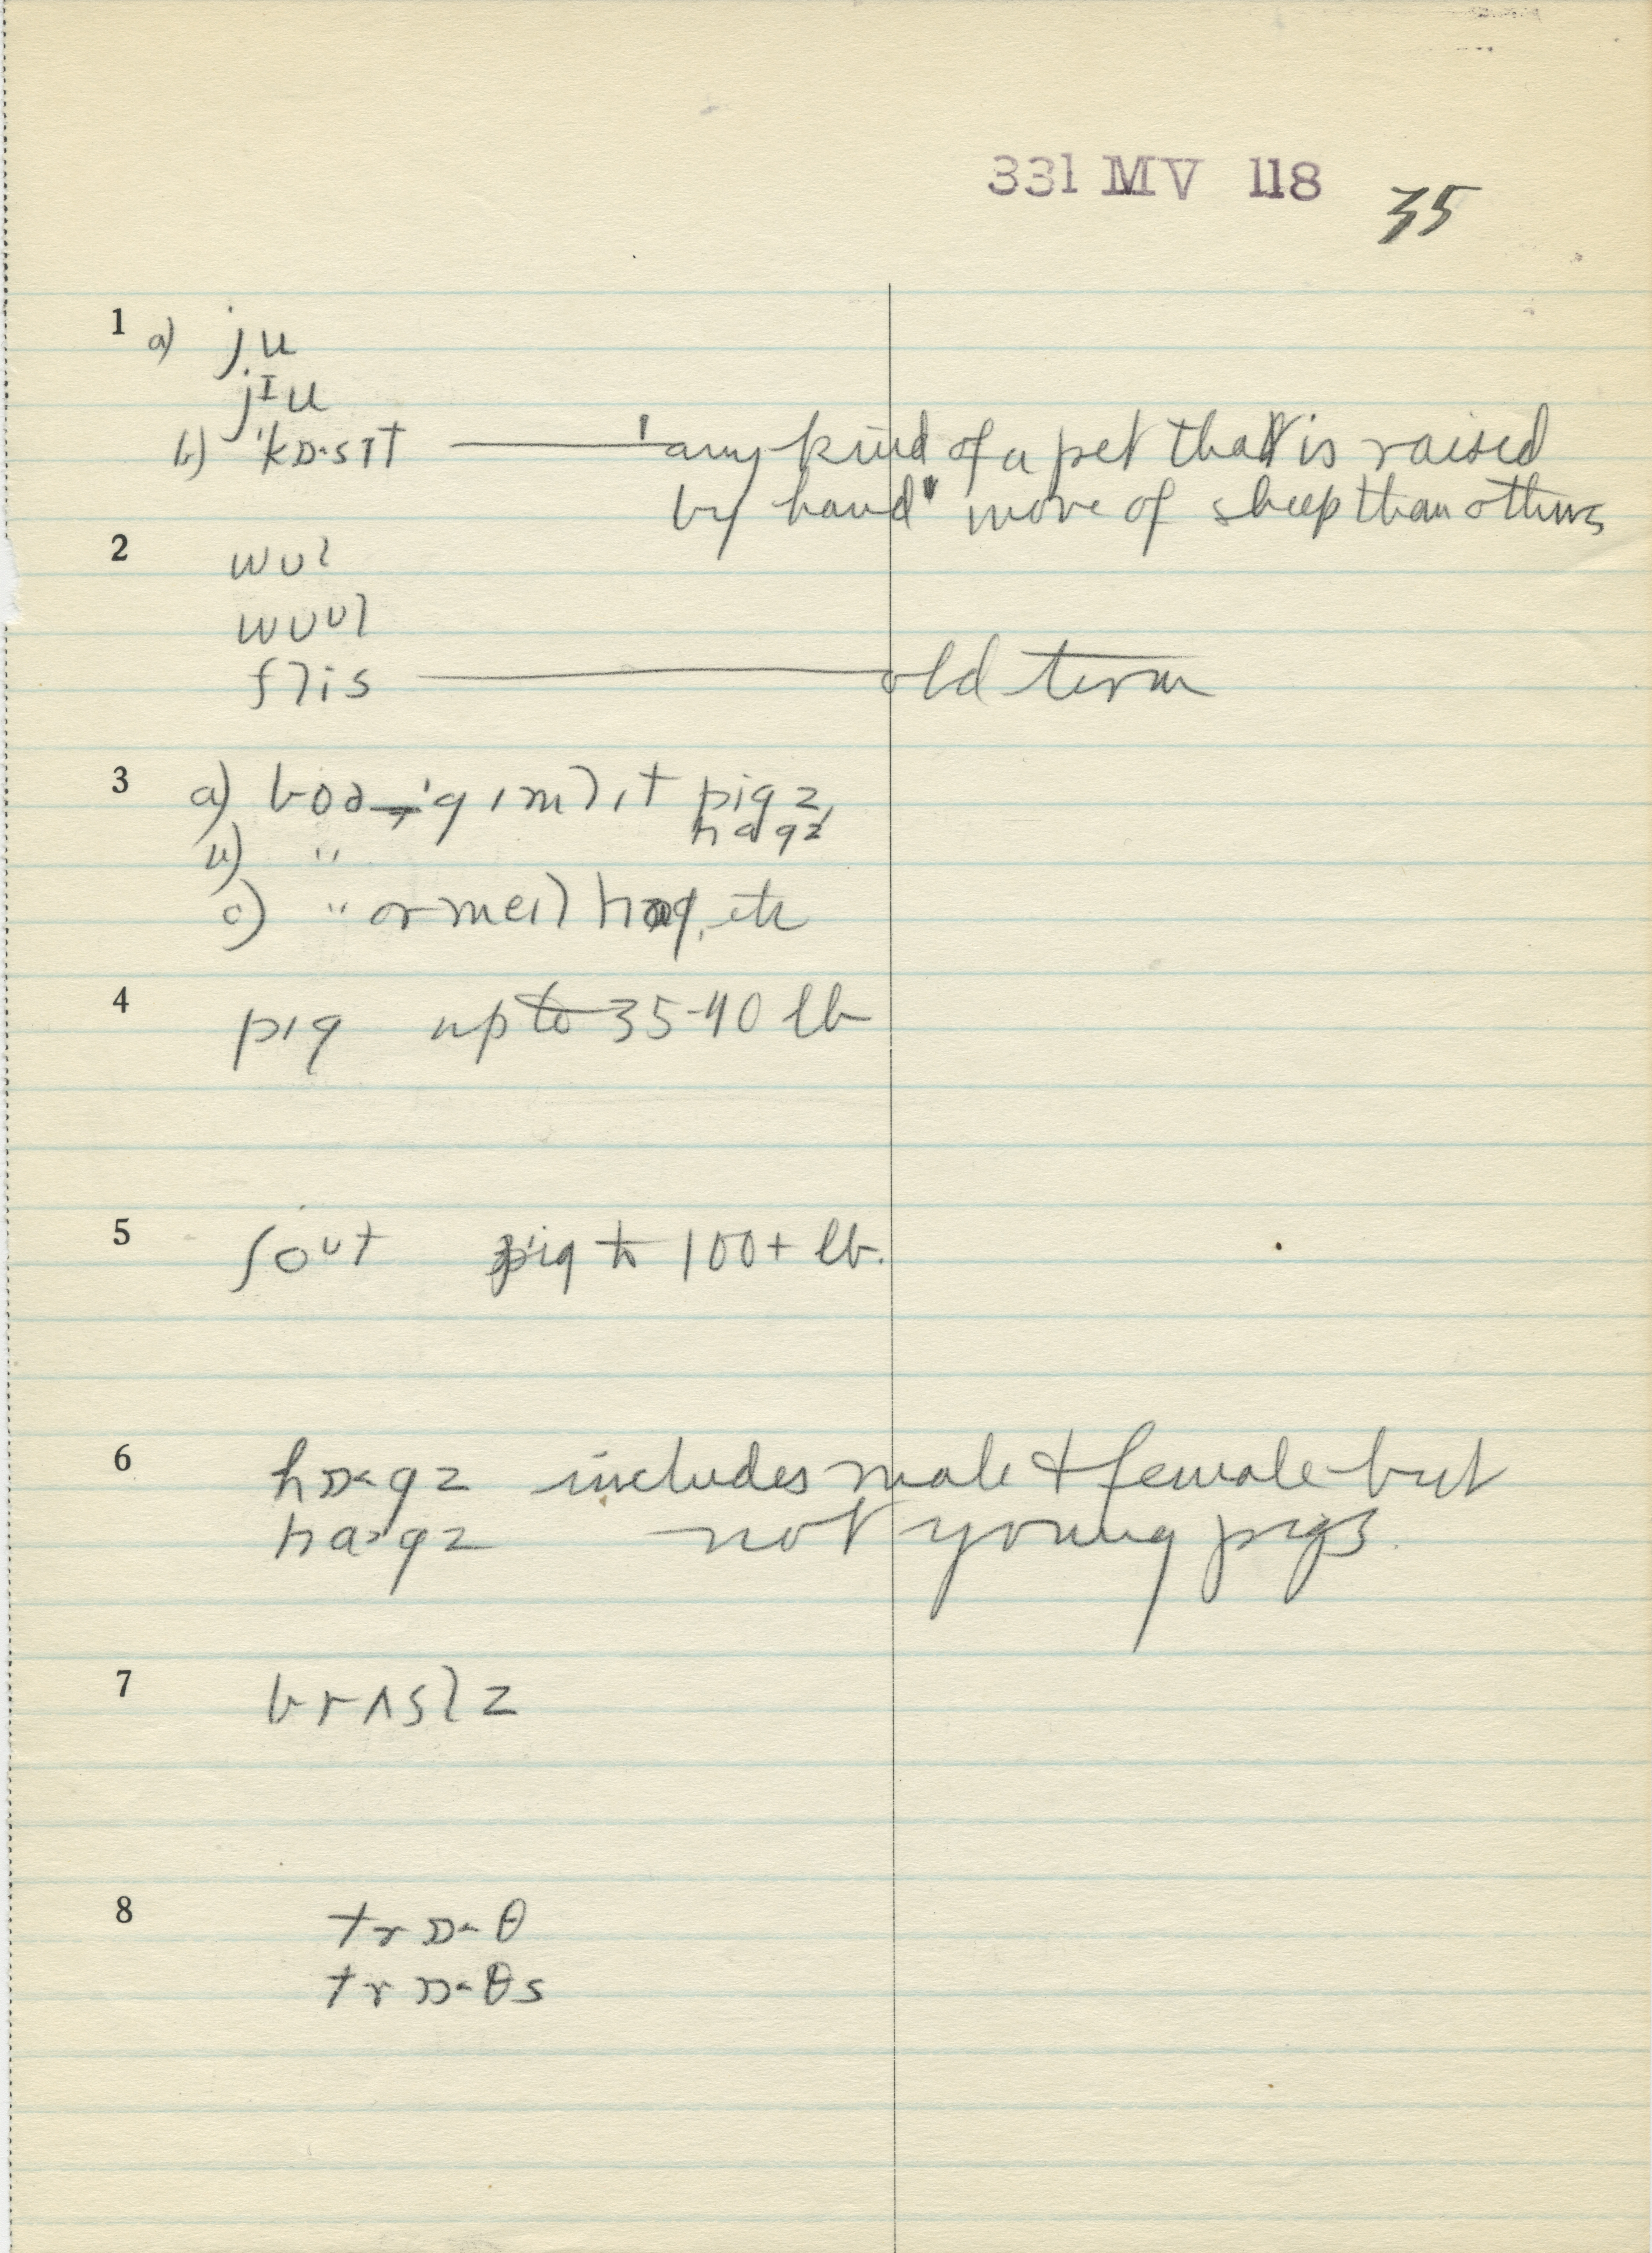 331 MV 118 35
1 a) ju
jɪu
b) ˈkɒ·sɪt "any kind of a pet that is raised
by hand" more of sheep than others
2 wʊl
wʊᵘl
flis old term
3 a) boə pigz,
hɑgz
b) "
c) " or meɪl hɑg, etc
4 pɪg up to 35-40 lb
5 ʃoᵘt pig to 100+ lb.
6 hɒ·gz includes male & female but
hɑ·gz not young pigs.
7 brʌslz
8 trɒ·θ
trɒ·θs